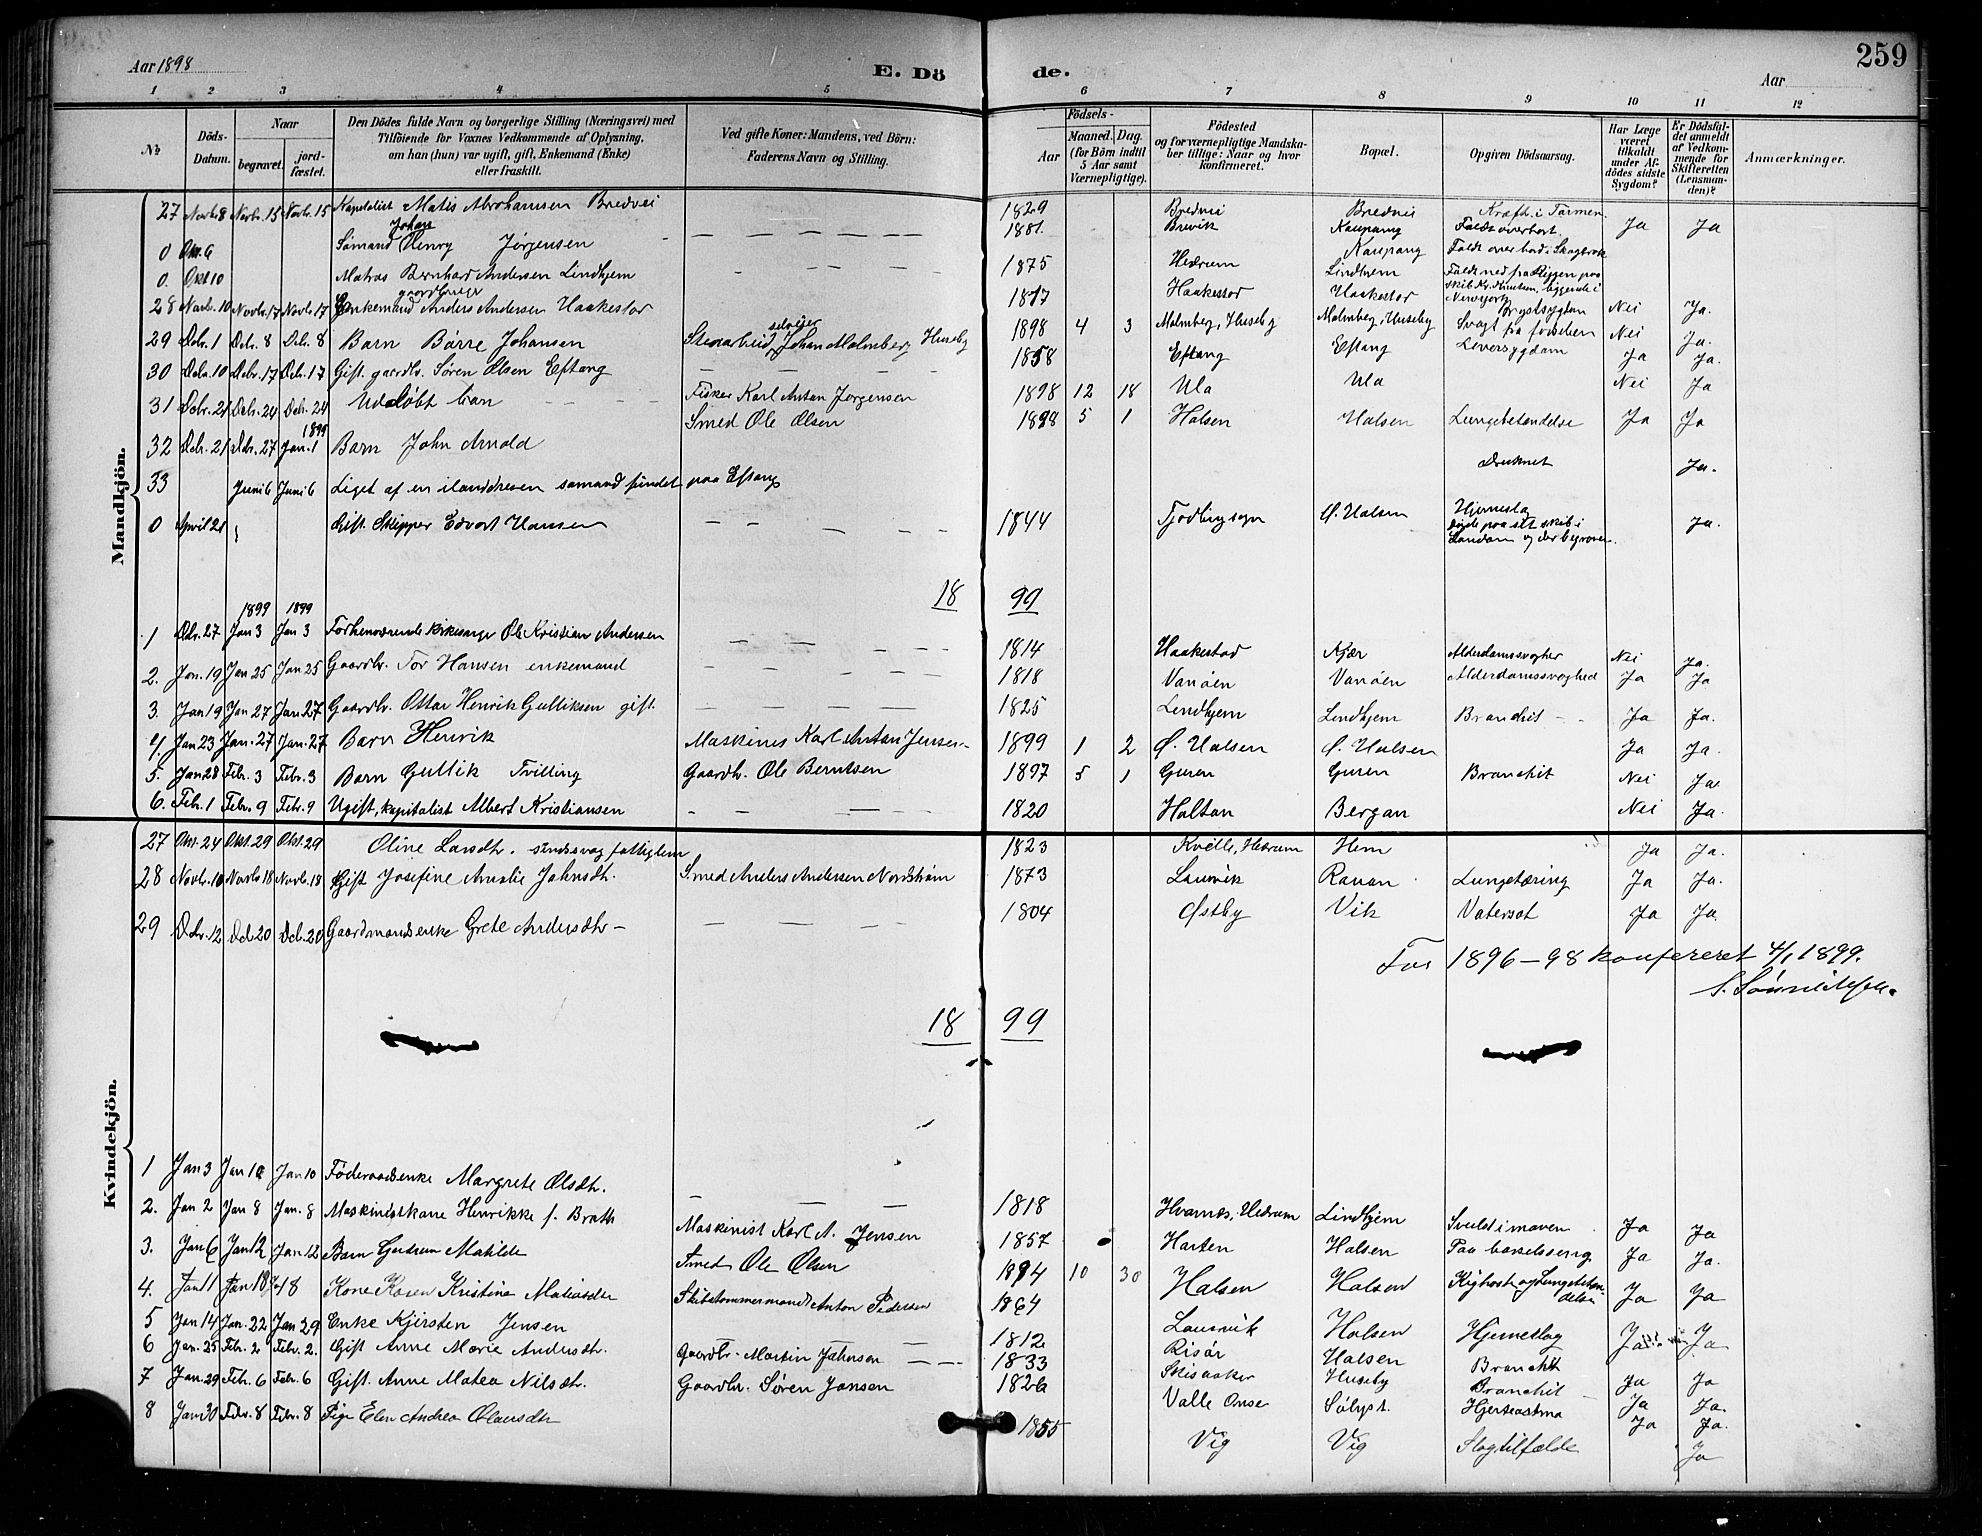 Aar 1898
E. Dö
de.
259
Aar
1 2 3 4 5 6 7 8 9 10 11 12
№
Döds-Datum.
Naar
begravet.
jord-fæstet.
Den Dödes fulde Navn og borgerlige Stilling (Næringsvei) med
Tilföiende for Voxnes Vedkommende af Oplysning,
om han (hun) var ugift, gift, Enkemand (Enke)
eller fraskilt.
Ved gifte Koner: Mandens, ved Börn:
Faderens Navn og Stilling.
Födsels-
Aar
Maaned. Dag.
(for Börn indtil 5 Aar samt Værnepligtige).
Födested
og for værnepligtige Mandska-
ber tillige: Naar og hvor
konfirmeret.
Bopæl.
Opgiven Dödsaarsag.
Har Læge været tilkaldt under Af-dödes sidste Sygdom?
Er Dödsfal-det anmeldt af Vedkom-mende for Skifteretten (Lensman-den)?
Anmærkninger.
Mandkjön.
27 Novbr. 8 Novbr. 15 Novbr. 15 Kapitalist Matis Abrahamsen Bredvei 1829 Bredvei Bredvei Kræft i Tarmen. Ja Ja
0 Okt. 6 Sømand Johan Henry Jørgensen — — — 1881 Brevik Kaupang Faldt overbord.
0. Okt 10 Matros Bernhard Andersen Lindhjem — — — 1875 Hedrum Kaupang Faldt over bord i Skagerak
Lindhjem Faldt ned fra Riggen paa
skib Kr. Knudsen, liggende i
Newyork
28 Novbr. 10 Novbr. 17 Novbr. 17 Enkemand gaardbruger Anders Andersen Haakestad 1817 Haakestad Haakestad Brystsygdom Nei Ja.
29 Dcbr. 1 Dcbr. 8 Dcbr. 8 Barn Børre Johansen Stenarbeid. selveier Johan Malmberg Huseby 1898 4 3 Malmberg, Huseby Malmberg, Huseby Svagt fra fødselen Nei Ja.
30 Dcbr. 10 Dcbr. 17 Dcbr. 17 Gift gaardbr. Søren Olsen Eftang — — — 1858 Eftang Eftang Leversygdom Ja Ja.
31 Dcbr. 21 Dcbr. 24 Dcbr. 24 Udøbt barn Fisker Karl Anton Jørgensen 1898 12 18 Ula Ula Nei Ja
32 Dcbr. 21 Dcbr. 27 1899 Jan. 1 Barn John Arnold Smed Ole Olsen 1898 5 1 Halsen Halsen Lungebetændelse Ja Ja
33 Juni 6 Juni 6 Liget af en ilanddreven sømand fundet paa Eftang Druknet Ja.
0 April 21 Gift. Skipper Edvart Hansen — — — 1844 Tjødling sogn Ø. Halsen Hjerneslag
døde paa sit skib i
London og der begraven. Ja.
18 99
1 Dcbr. 27 1899 Jan 3 1899 Jan 3 Forhenværende kirkesanger Ole Kristian Andersen — — — 1814 Haakestad Kjær Alderdomssvaghed Nei Ja.
2. Jan. 19 Jan 25 Jan 25 Gaardbr. Tor Hansen enkemand — — — 1818 Varøen Varøen Alderdomssvaghed Ja Ja
3. Jan 19 Jan 27 Jan 27 Gaardbr. Ottar Henrik Gulliksen gift. — — — 1825 Lindhjem Lindhjem Bronchit — Ja Ja.
4. Jan 23 Jan. 27 Jan. 27 Barn Henrik Maskinist Karl Anton Jensen 1899 1 2 Ø. Halsen Ø. Halsen Ja Ja.
5. Jan 28 Febr. 3 Febr. 3 Barn Gullik Tvilling Gaardbr. Ole Berntsen 1897 5 1 Guren Guren Bronchit Nei Ja.
6. Febr. 1 Febr. 9 Febr. 9 Ugift, kapitalist Albert Kristiansen — — — 1820 Holtan Bergan Nei Ja.
Kvindekjön.
27 Okt. 24 Okt. 29 Okt. 29 Oline Larsdtr. sindssvag fattiglem 1823 Kvelle, Hedrum Hem Ja Ja.
28 Novbr. 10 Novbr. 18 Novbr. 18 Gift Josefine Amalie Johnsdtr. Smed Anders Andersen Nordstrøm 1873 Laurvik Ravan Lungetæring Ja Ja.
29 Dcbr. 12 Dcbr. 20 Dcbr. 20 Gaardmandsenke Grete Andersdtr — — — 1804 Østby Vik Vatersot Ja Ja
For 1896—98 konfereret 4/1 1899.
18 99
1 Jan 3 Jan 10 Jan 10 Føderaadsenke Margrete Olsdtr. — — — 1818 Hvarnes, Hedrum Lindhjem Svulst i maven Ja Ja
2. Jan 2 Jan 8 Jan. 8 Maskinistkone Henrikke f. Brath Maskinist Karl A. Jensen 1857 Harten Halsen Paa barselsseng Ja Ja.
3. Jan 6 Jan 12 Jan 12 Barn Gudrun Matilde Smed Ole Olsen 1894 10 30 Halsen Halsen Kighoste og Lungebetæn-
delse Ja Ja
4. Jan 11 Jan 18 18 Kone Karen Kristine Matiasdtr Skibstømmermand Anton Pedersen 1864 Laurvik Halsen Hjerneslag Ja Ja
5 Jan 14 Jan. 22 Jan 29 Enke Kjersten Jensen — 1812 Risør Halsen Bronchit Ja Ja
6 Jan. 25 Febr. 2 Febr. 2. Gift Anne Marie Andersdtr. Gaardbr. Martin Johnsen — — 1833 Skisaaker Huseby Bronchit Ja Ja.
7 Jan. 29 Febr. 6 Febr. 6 Gift. Anne Matea Nilsdtr. Gaardbr. Søren Jansen 1826 Valle Onsø Sølyst. Hjerteastma Ja Ja.
8 Jan 30 Febr. 8 Febr. 8 Pige Elen Andrea Olausdtr 1855 Vig Vig Slagtilfælde Ja